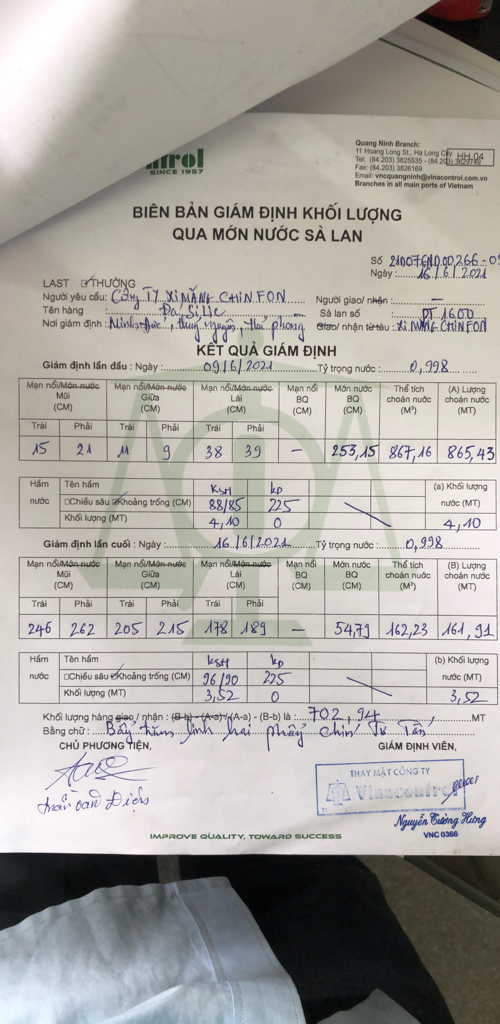 ntrol
SINCE 1957
Quang Ninh Branch:
11 Hoang Long St., Ha Long City
Tel: (84.203) 3825535 - (84.203)
Fax: (84.203) 3826169
Email: vncquangninh@vinacontrol.com.vn
Branches in all main ports of Vietnam
HH 04
BIÊN BẢN GIÁM ĐỊNH KHỐI LƯỢNG
QUA MỚN NƯỚC SÀ LAN
Số
Ngày: 16/6/2021
LAST THƯỜNG
Người yêu cầu: Công Ty XI MĂNG CHINFON Người giao/ nhận: —
Tên hàng Đá Silic Sà lan số ĐT 1600
Nơi giám định: Minh Đức, Thuỷ Nguyên, Hải phòng Giao/ nhận từ tàu: XI MĂNG CHINFON
KẾT QUẢ GIÁM ĐỊNH
Giám định lần đầu: Ngày: 09/6/2021 Tỷ trọng nước: 0,998
Mạn nổi/Món nước Mũi (CM) Mạn nổi/Món nước Giữa (CM) Mạn nổi/Món nước Lái (CM) Mạn nổi BQ (CM) Món nước BQ (CM) Thể tích choán nước (M³) (A) Lượng choán nước (MT)
Trái Phải Trái Phải Trái Phải
15 21 11 9 38 39 — 253,15 867,16 865,43
Hầm nước Tên hầm KSH kp (a) Khối lượng nước (MT)
Chiều sâu Khoảng trống (CM) 88/85 225
Khối lượng (MT) 4,10 0 4,10
Giám định lần cuối: Ngày: 16/6/2021 Tỷ trọng nước: 0,998
Mạn nổi/Món nước Mũi (CM) Mạn nổi/Món nước Giữa (CM) Mạn nổi/Món nước Lái (CM) Mạn nổi BQ (CM) Món nước BQ (CM) Thể tích choán nước (M³) (B) Lượng choán nước (MT)
Trái Phải Trái Phải Trái Phải
246 262 205 215 178 189 — 54,79 162,23 161,91
Hầm nước Tên hầm KSH kp (b) Khối lượng nước (MT)
Chiều sâu Khoảng trống (CM) 96/90 225
Khối lượng (MT) 3,52 0 3,52
Khối lượng hàng giao / nhận: (B-b) - (A-a) / (A-a) - (B-b) là: 702,94 MT
Bằng chữ: Bảy trăm linh hai phẩy chín tư Tấn
CHỦ PHƯƠNG TIỆN, GIÁM ĐỊNH VIÊN,
THAY MẶT CÔNG TY
Vinacontrol
Trần Văn Điện
Nguyễn Tường Hưng
VNC 0366
IMPROVE QUALITY, TOWARD SUCCESS